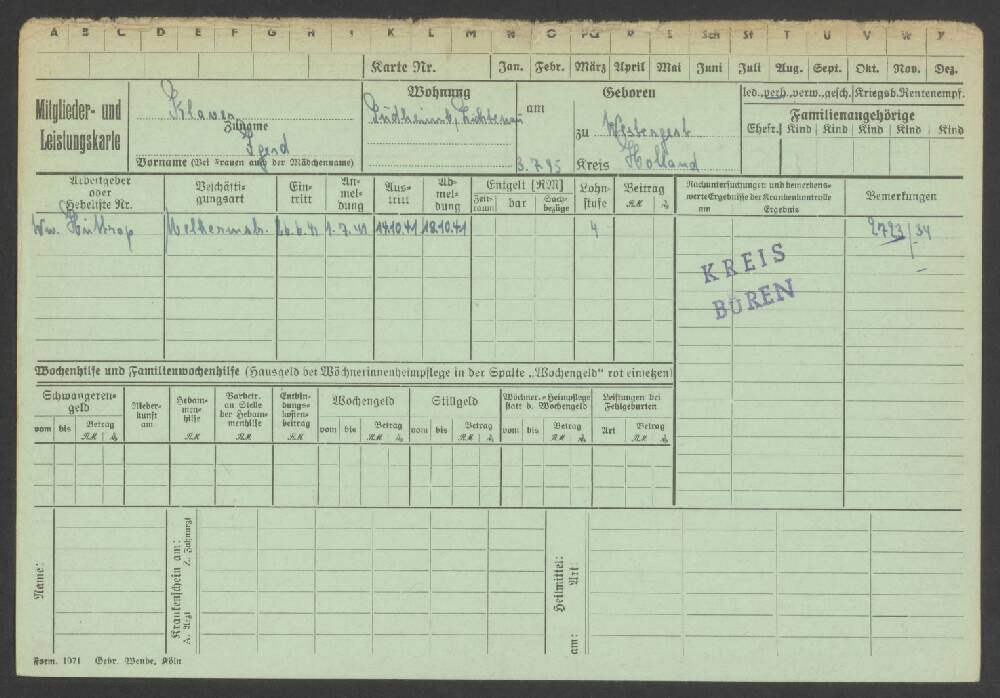 A B C D E F G H I K L M N O PQ R S Sch St T U V W Y
Karte Nr. Jan. Febr. März April Mai Juni Juli Aug. Sept. Okt. Nov. Dez.
Mitglieder- und
Leistungskarte
Zuname
Gerd
Vorname (Bei Frauen auch der Mädchenname)
Wohnung
Geboren
am 3.7.95
zu Westergest
Kreis Holland
led., verh., verw., gesch. Kriegsb. Rentenempf.
Familienangehörige
Ehefr. Kind Kind Kind Kind Kind
Arbeitgeber oder Hebeliste Nr.
Beschäftigungsart
Eintritt
Anmeldung
Austritt
Abmeldung
Entgelt [RM]
Zeitraum bar Sachbezüge
Lohnstufe
Beitrag
RM
Nachuntersuchungen und bemerkenswerte Ergebnisse der Krankenkontrolle
am Ergebnis
Bemerkungen
Ww. 26.6.41 1.7.41 14.10.41 18.10.41 4 2723/34
KREIS
BÜREN
Wochenhilfe und Familienwochenhilfe (Hausgeld bei Wöchnerinnenheimpflege in der Spalte „Wochengeld“ rot einsetzen)
Schwangerengeld
vom bis Betrag RM
Niederkunft am
Hebammenhilfe RM
Barbetr. an Stelle der Hebammenhilfe RM
Entbindungskostenbeitrag RM
Wochengeld
vom bis Betrag RM
Stillgeld
vom bis Betrag RM
Wöchner.-Heimpflege statt d. Wochengeld
vom bis Betrag RM
Leistungen bei Fehlgeburten
Art Betrag RM
Name:
Krankenschein am:
A. Arzt Z. Zahnarzt
Heilmittel:
am: Art:
Form. 1071 Gebr. Wende, Köln